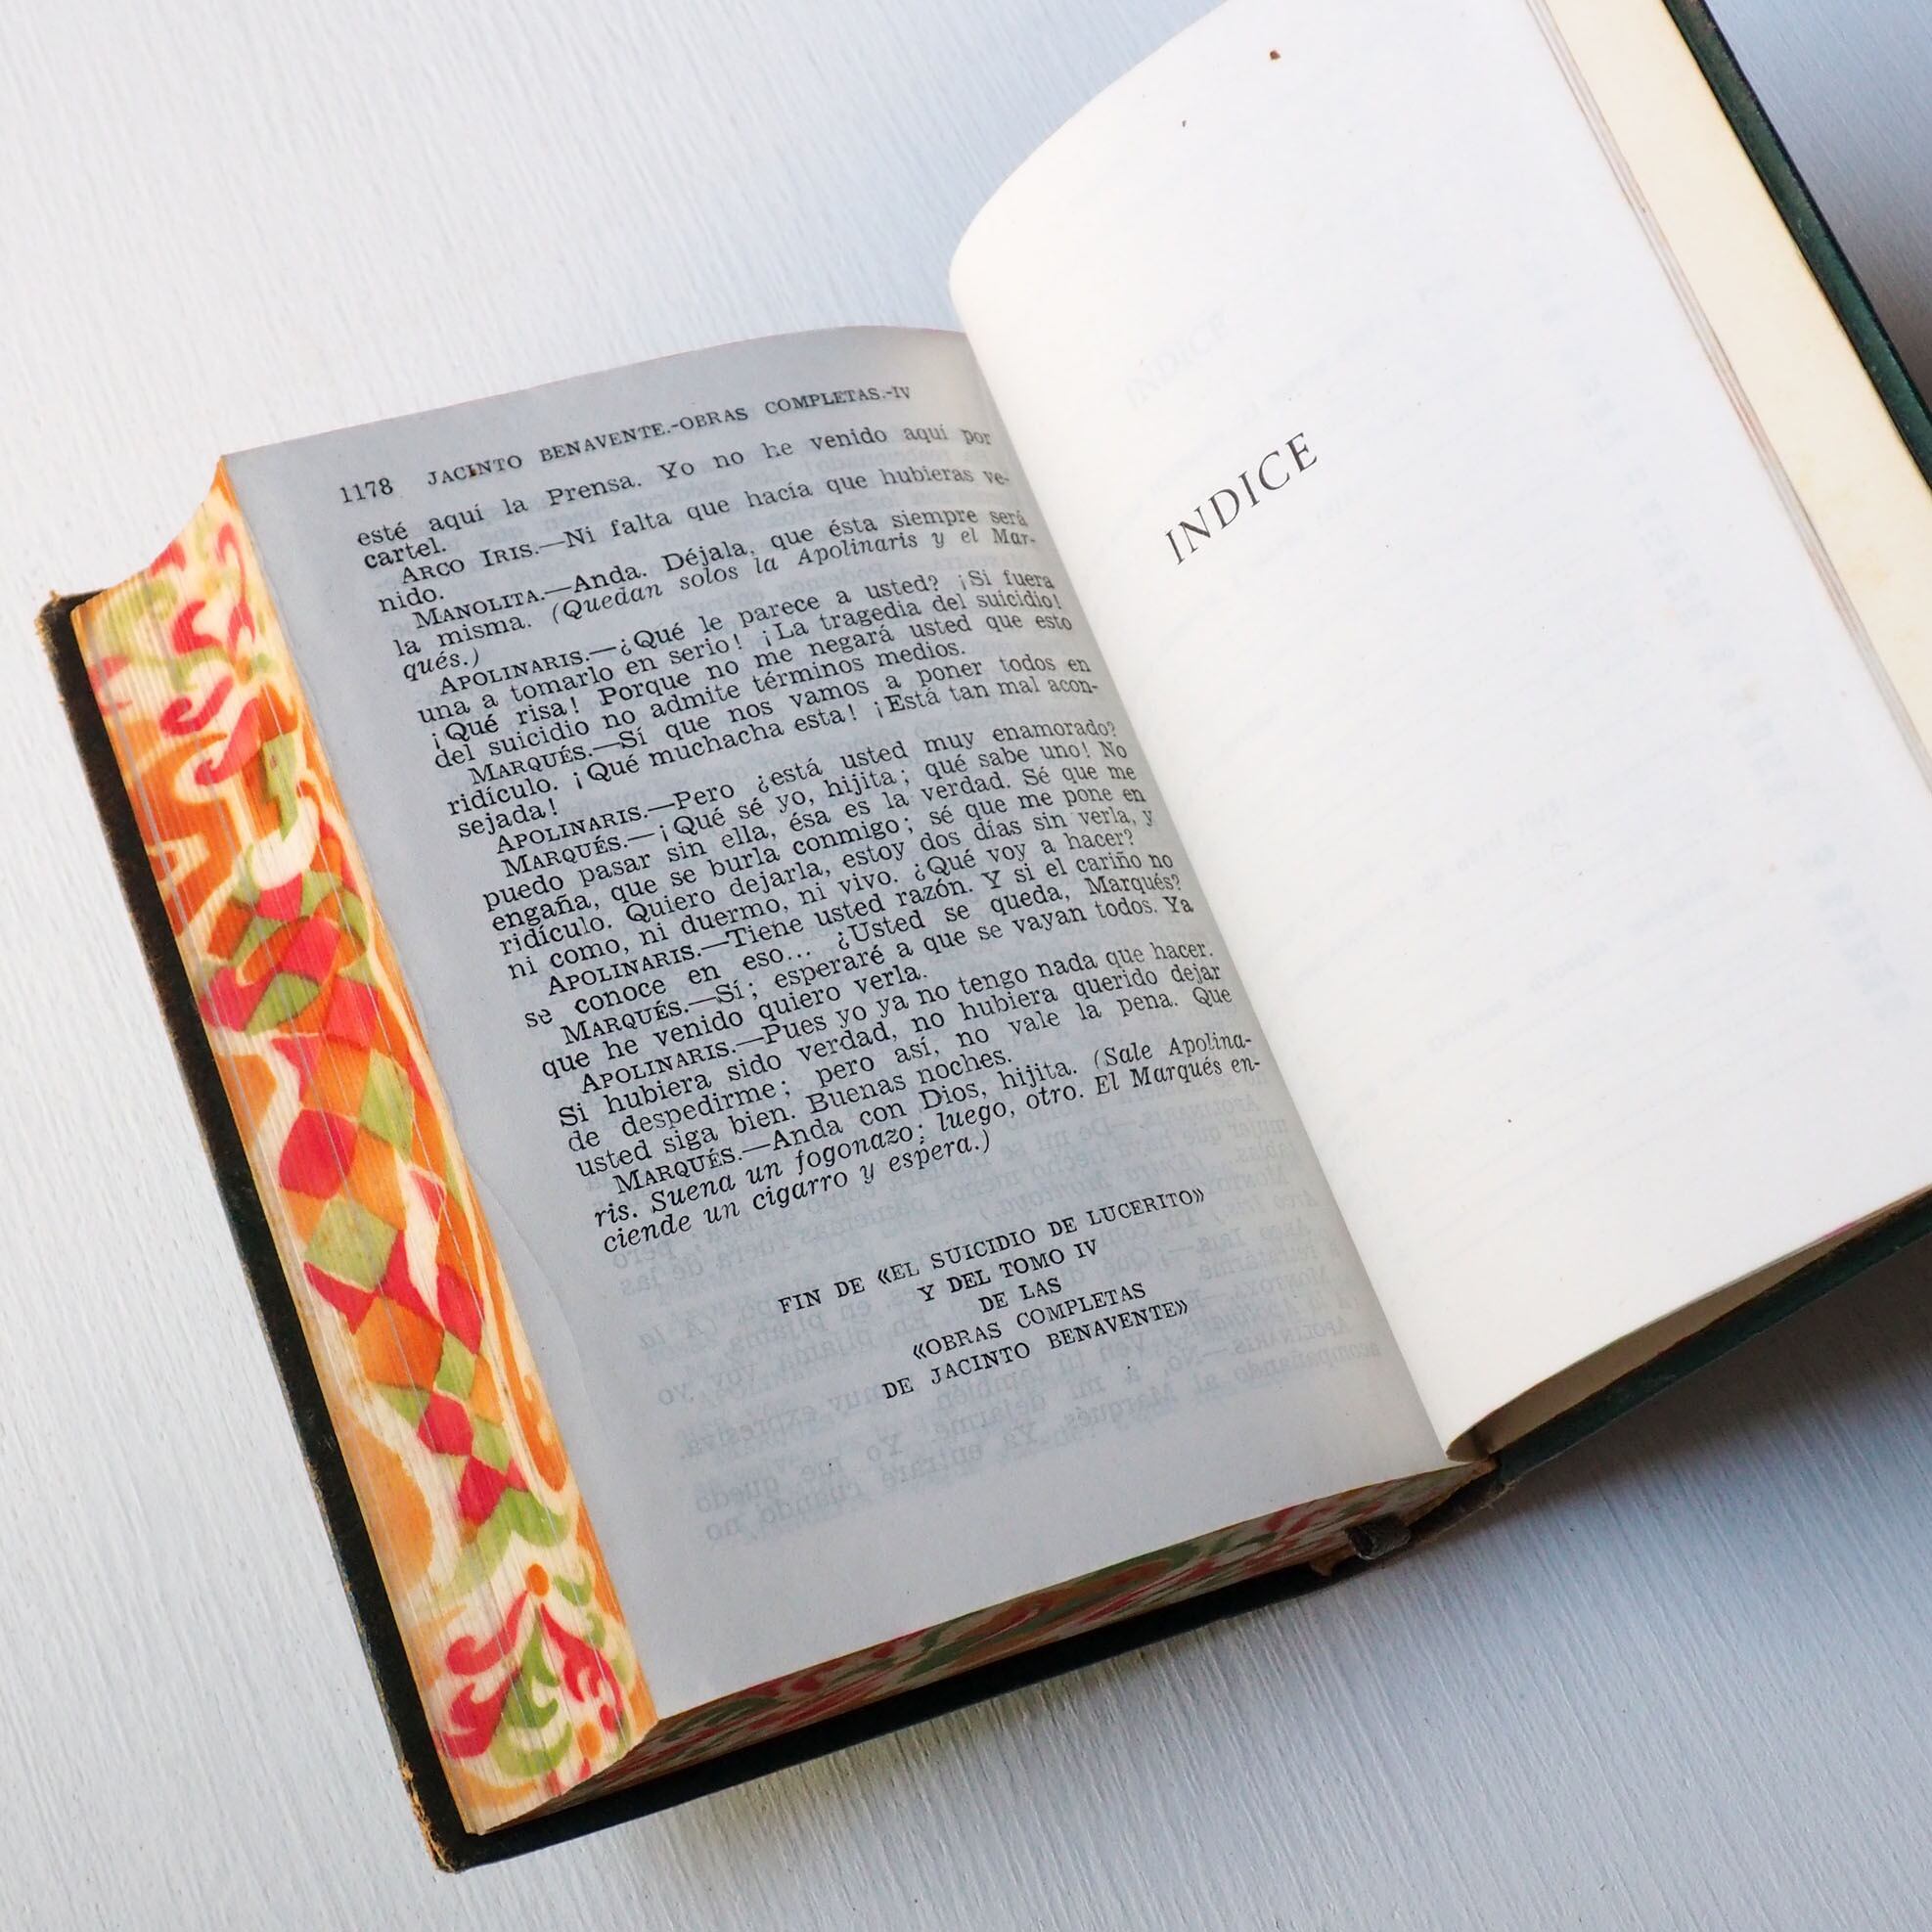 1178 JACINTO BENAVENTE.-OBRAS COMPLETAS.-IV
esté aquí la Prensa. Yo no he venido aquí por
cartel.
ARCO IRIS.—Ni falta que hacía que hubieras ve-
nido.
MANOLITA.—Anda. Déjala, que ésta siempre será
la misma. (Quedan solos la Apolinaris y el Mar-
qués.)
APOLINARIS.—¿Qué le parece a usted? ¡Si fuera
una a tomarlo en serio! ¡La tragedia del suicidio!
¡Qué risa! Porque no me negará usted que esto
del suicidio no admite términos medios.
MARQUÉS.—Sí que nos vamos a poner todos en
ridículo. ¡Qué muchacha esta! ¡Está tan mal acon-
sejada!
APOLINARIS.—Pero ¿está usted muy enamorado?
MARQUÉS.—¡Qué sé yo, hijita; qué sabe uno! No
puedo pasar sin ella, ésa es la verdad. Sé que me
engaña, que se burla conmigo; sé que me pone en
ridículo. Quiero dejarla, estoy dos días sin verla, y
ni como, ni duermo, ni vivo. ¿Qué voy a hacer?
APOLINARIS.—Tiene usted razón. Y si el cariño no
se conoce en eso... ¿Usted se queda, Marqués?
MARQUÉS.—Sí; esperaré a que se vayan todos. Ya
que he venido quiero verla.
APOLINARIS.—Pues yo ya no tengo nada que hacer.
Si hubiera sido verdad, no hubiera querido dejar
de despedirme; pero así, no vale la pena. Que
usted siga bien. Buenas noches.
MARQUÉS.—Anda con Dios, hijita. (Sale Apolina-
ris. Suena un fogonazo; luego, otro. El Marqués en-
ciende un cigarro y espera.)
FIN DE «EL SUICIDIO DE LUCERITO»
Y DEL TOMO IV
DE LAS
«OBRAS COMPLETAS
DE JACINTO BENAVENTE»
INDICE